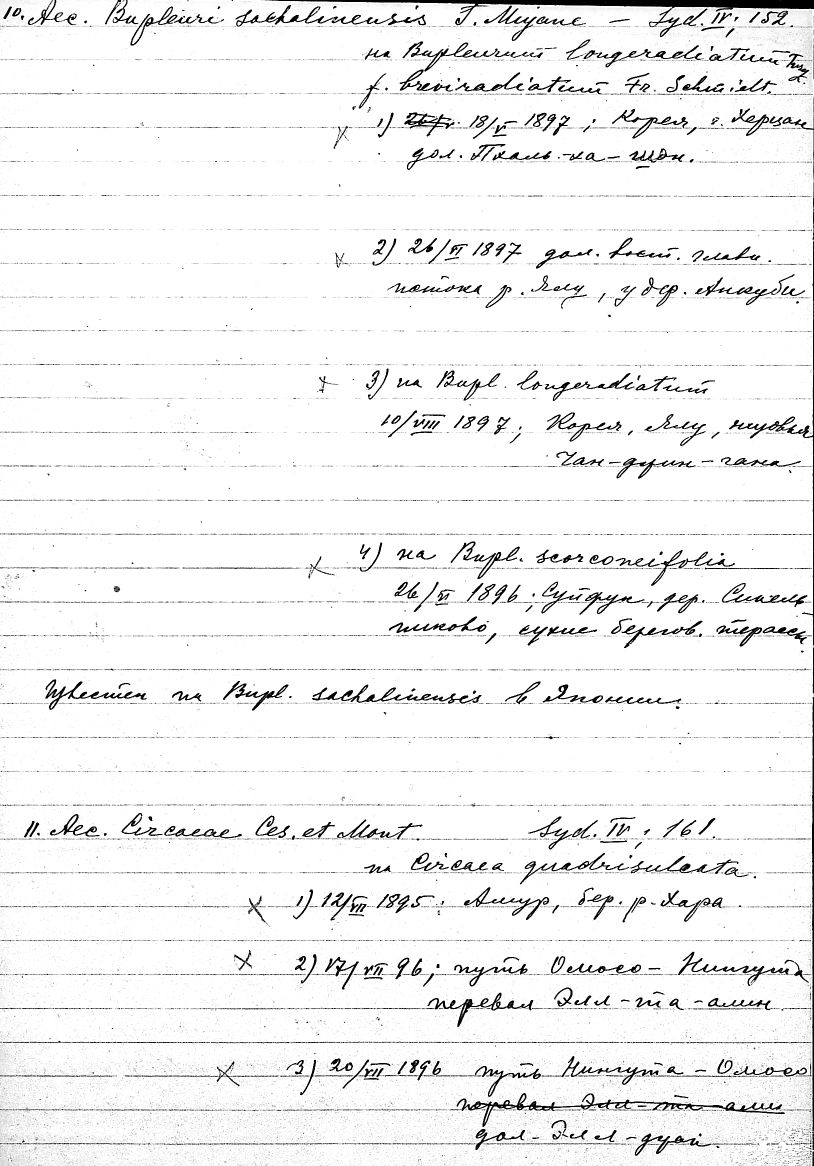 10. Aec. Bupleuri sachalinensis T. Miyane – Syd. IV; 152.
на Bupleurum longeradiatum Turcz
f. breviradiatum Fr. Schmidt.
1) 18/V 1897; Корея, г. Херцан
дол. Пхаль-ха-шон.
2) 26/VI 1897 дол. вост. главн.
истока р. Ялу, у дер. Анкуби.
3) на Bupl. longeradiatum
10/VIII 1897; Корея, Ялу, низовья
Чан-дзин-гана.
4) на Bupl. scorconeifolia
26/VI 1896; Суйфун, дер. Синель-
никово, сухие берегов. терассы.
Известен на Bupl. sachalinensis в Японии.
11. Aec. Circaeae Ces. et Mont. Syd. IV; 161.
на Circaea quadrisulcata.
1) 12/VII 1895; Амур, бер. р. Хара.
2) 17/VII 96; путь Омосо – Нингута
перевал Элл-та-алин
3) 20/VII 1896 путь Нингута – Омосо
перевал Элл-та-алин
дол. Элл-дуои.